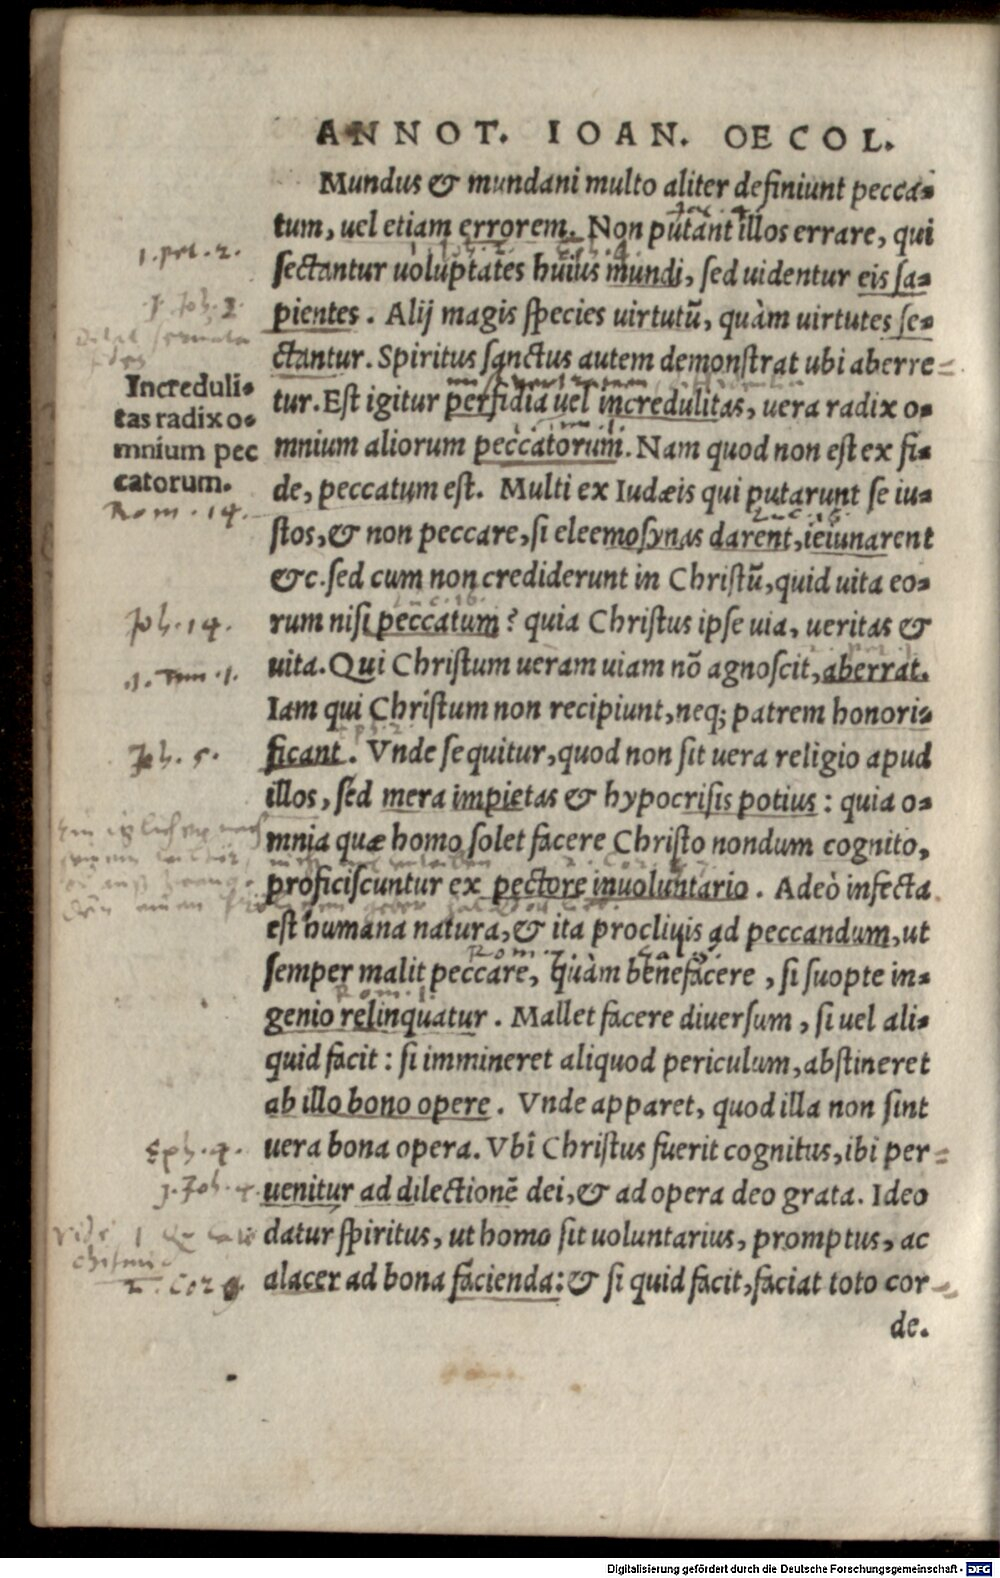 ANNOT. IOAN. OECOL.
Mundus & mundani multo aliter definiunt pecca-
tum, uel etiam errorem. Non putant illos errare, qui
1. pet. 2.
sectantur uoluptates huius mundi, sed uidentur eis sa-
1. Joh. 2.
pientes. Alij magis species uirtutũ, quàm uirtutes se-
ctantur. Spiritus sanctus autem demonstrat ubi aberre
Increduli-
tas radix o-
mnium pec
catorum.
tur. Est igitur perfidia uel incredulitas, uera radix o-
mnium aliorum peccatorum. Nam quod non est ex fi-
de, peccatum est. Multi ex Iudæis qui putarunt se iu-
Rom. 14.
Luc. 18.
stos, & non peccare, si eleemosynas darent, ieiunarent
&c. sed cum non crediderunt in Christũ, quid uita eo-
Luc. 16.
Joh. 14.
rum nisi peccatum? quia Christus ipse uia, ueritas &
uita. Qui Christum ueram uiam nõ agnoscit, aberrat.
1. Tim. 1.
Iam qui Christum non recipiunt, neq; patrem honori-
Eph. 2.
Joh. 5.
ficant. Vnde sequitur, quod non sit uera religio apud
illos, sed mera impietas & hypocrisis potius: quia o-
mnia quæ homo solet facere Christo nondum cognito,
2. Cor. 9.
proficiscuntur ex pectore inuoluntario. Adeò infecta
est humana natura, & ita procliuis ad peccandum, ut
Rom. 7.
semper malit peccare, quàm benefacere, si suopte in-
Rom. 1.
genio relinquatur. Mallet facere diuersum, si uel ali-
quid facit: si immineret aliquod periculum, abstineret
ab illo bono opere. Vnde apparet, quod illa non sint
Eph. 4.
uera bona opera. Vbi Christus fuerit cognitus, ibi per
1. Joh. 4.
uenitur ad dilectionẽ dei, & ad opera deo grata. Ideo
datur spiritus, ut homo sit uoluntarius, promptus, ac
2. Cor 9
alacer ad bona facienda: & si quid facit, faciat toto cor
de.
Digitalisierung gefördert durch die Deutsche Forschungsgemeinschaft - DFG